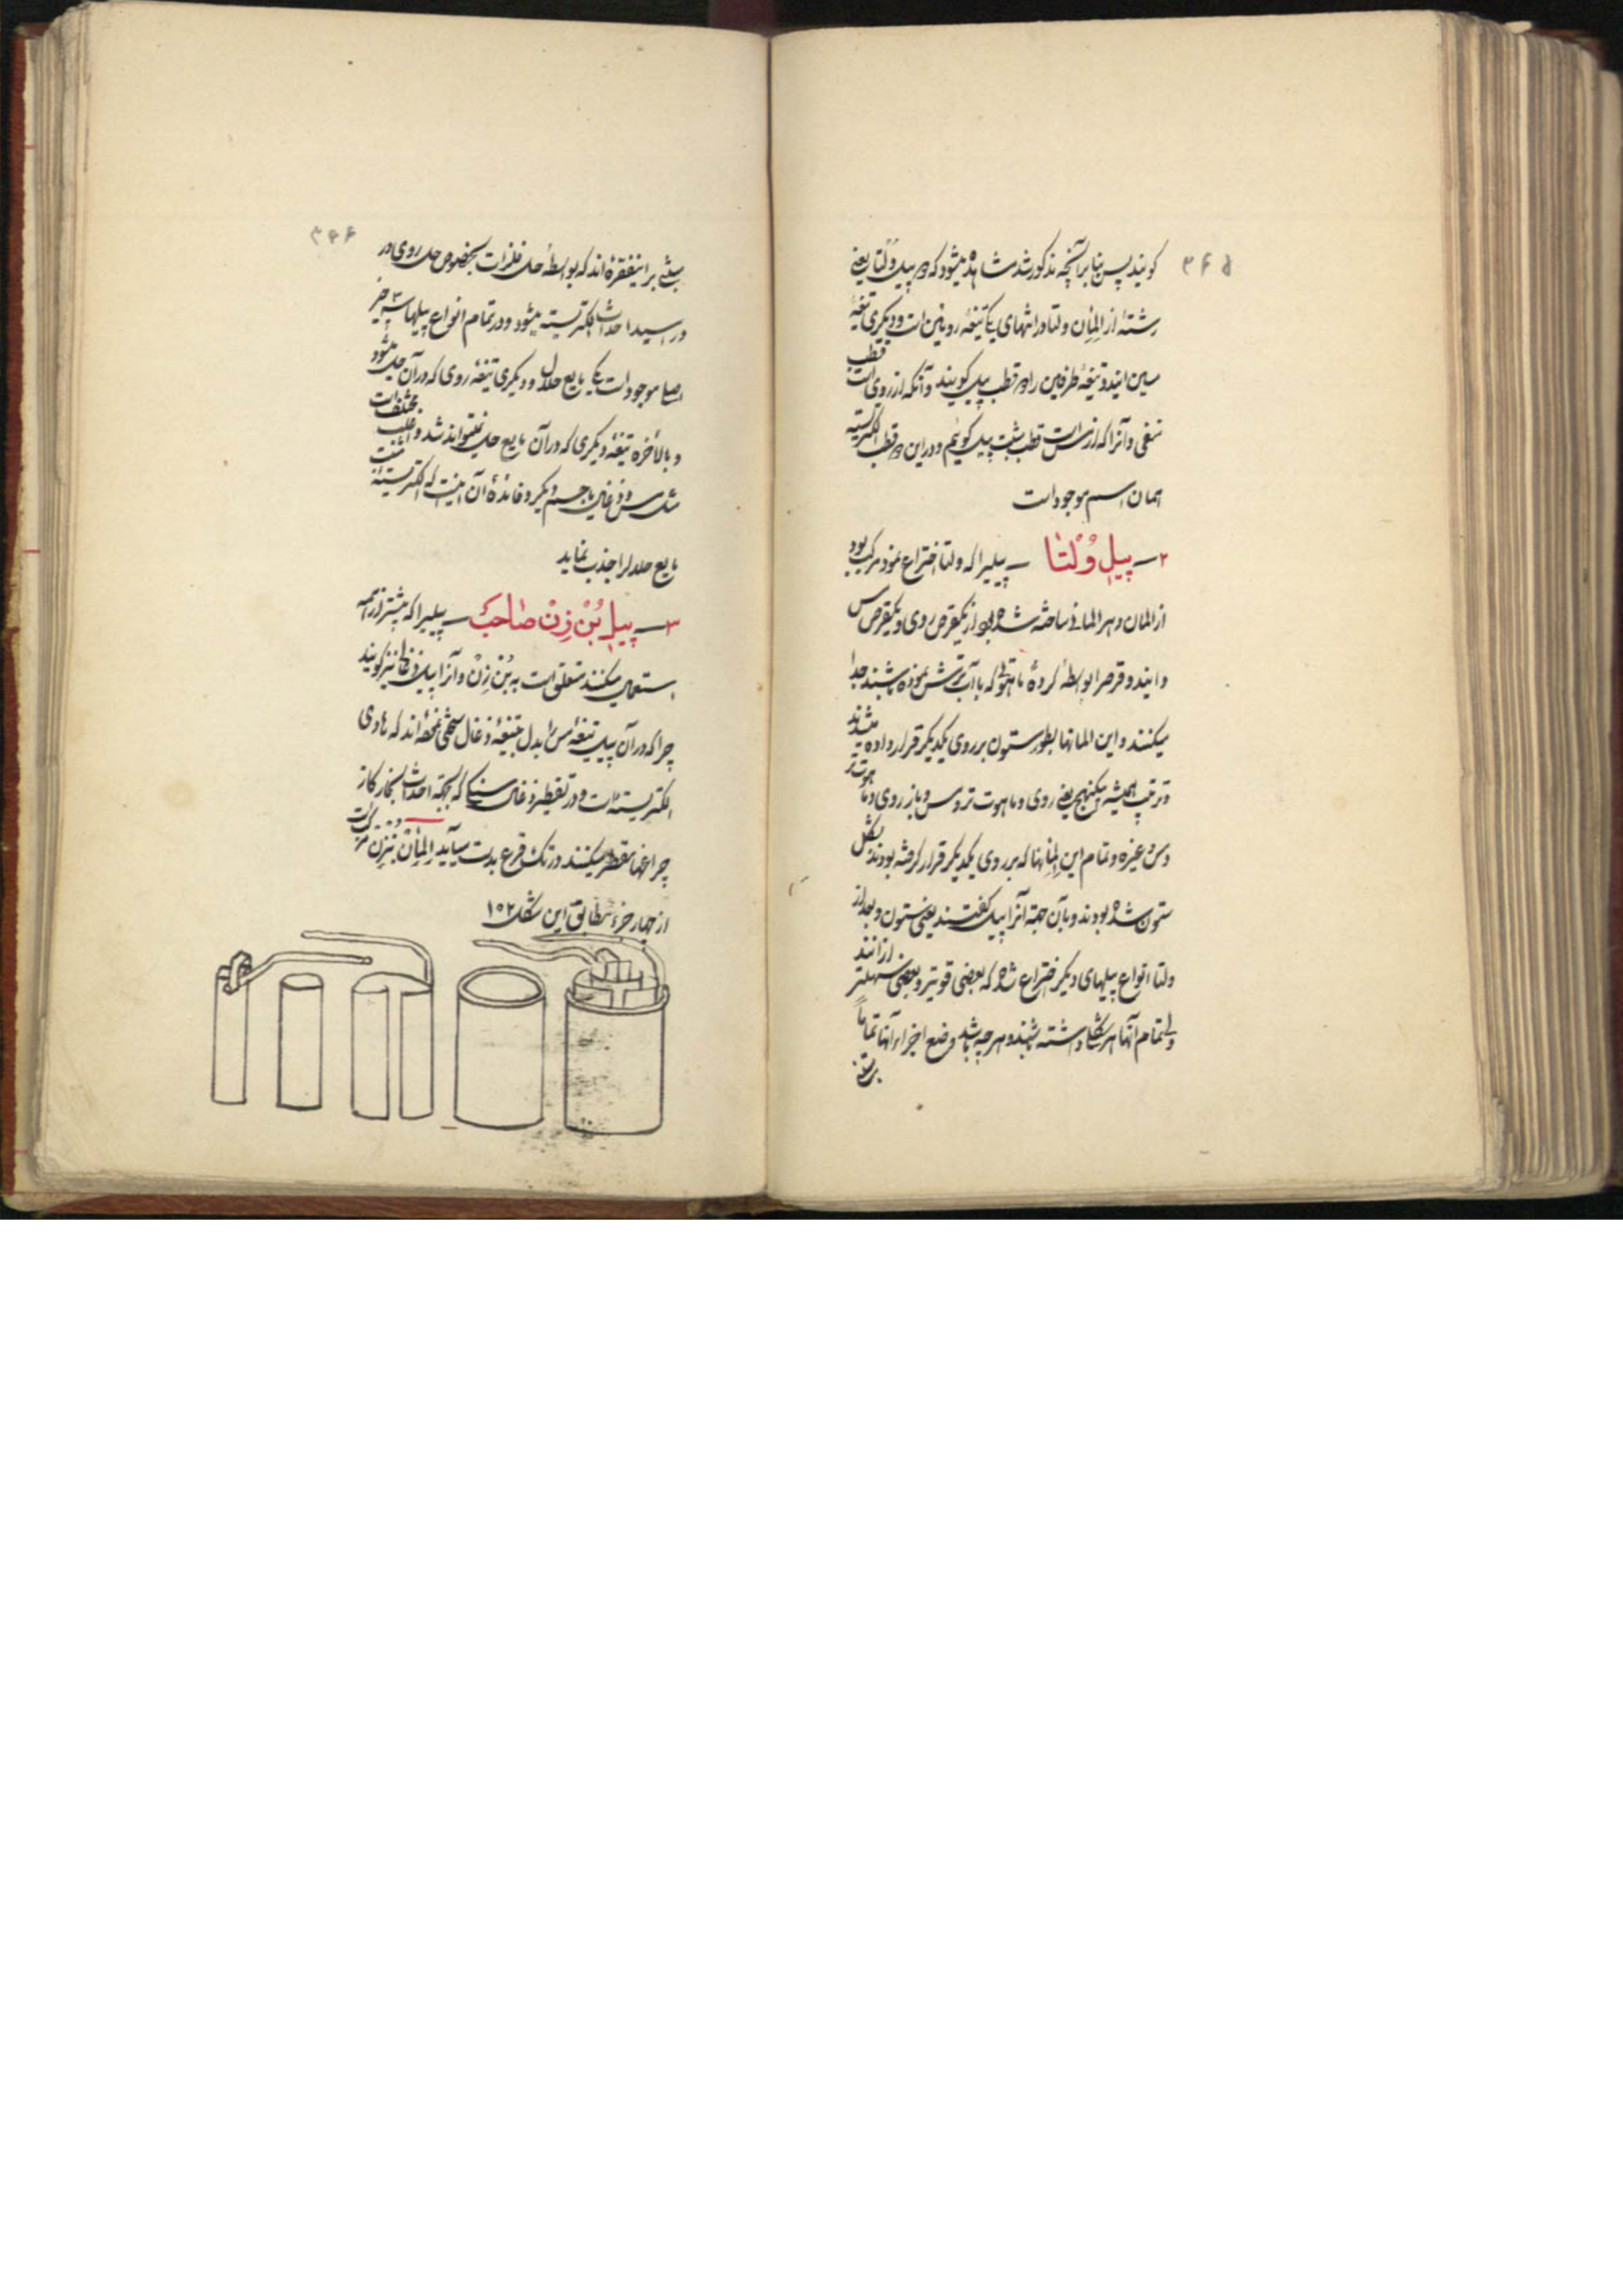 ۳۶۵
کویند پس بنا بر آنچه مذکور شد مشاهده میشود که در پیل ولتا یعنی
رشتهٔ از المان ولتا در انتهای یک تیغه روئین است و دیگری تیغهٔ
مسین ایندو تیغهٔ طرفین را دو قطب پیل کویند و آنکه از روی است قطب
منفی و آنرا که از مس است قطب مثبت پیل کوئیم و در این دو قطب الکتریسیته
همان اسم موجود است
۲ــ پیل وُلْتا ــ پیلیرا که ولتا اختراع نمود مرکب بود
از المان و هر المانی ساخته شده بود از یکقرص روی و یکقرص مس
و ایندو قرص را بواسطهٔ کردهٔ ماهوتی که با آب ترشش نموده باشند جدا
میکنند و این المانها بطور ستون بر روی یکدیکر قرار داده میشدند
و ترتیب همیشه یکنهج یعنی روی و ماهوت تر و مس و باز روی و ماهوت تر
و مس و غیره و تمام این المانها که بر روی یکدیکر قرار کرفته بودند بشکل
ستون شده بودند و بآن جهة آنرا پیل کفتند یعنی ستون و بعد از
ولتا انواع پیلهای دیکر اختراع شد که بعضی قویتر و بعضی سهلتر از آنند
ولی تمام آنها هر شکل داشته باشند و هر چه باشد وضع اجزاء آنها تماماً
۳۶۶
مبنی بر اینفقره اند که بواسطهٔ حل فلزات بخصوص حل روی در
در اسید احداث الکتریسیته میشود و در تمام انواع پیلها سه چیز
اصلا موجود است یکی مایع حلال و دیکری تیغهٔ روی که در آن حل میشود
و بالاخره تیغهٔ دیکری که در آن مایع حل نمیتواند شد و اغلب مختلف است
مثل مس و ذغال یا جسم دیکر و فائدهٔ آن اینست که الکتریسیتهٔ مثبت
مایع حلال را جذب نماید
۳ــ پیل بُنْ زِنْ صاحب ــ پیلیرا که بیشتر از همه
استعمال میکنند متعلق است به بُنْ زِنْ و آنرا پیل ذغالی نیز کویند
چرا که در آن پیل تیغهٔ مس را بدل بتیغهٔ ذغال سختی نموده اند که هادی
الکتریسیته است و در تقطیر ذغال سنگی که بجهة احداث بخار کاز
چراغها مقطر میکنند در تک قرع بدست میآید المان بنزن مرکب است
از چهار جزء مطابق این شکل ۱۵۲